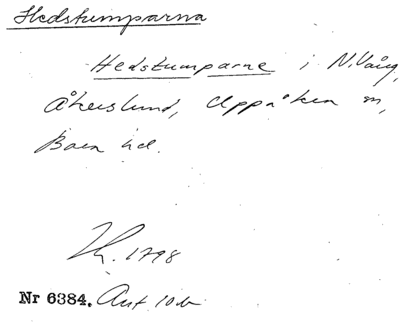 Hedstumparna
Hedstumparne i N. Vång,
Åkerslund, Uppåkra m,
Bara hd.
1798
Nr 6384. Ant. 10